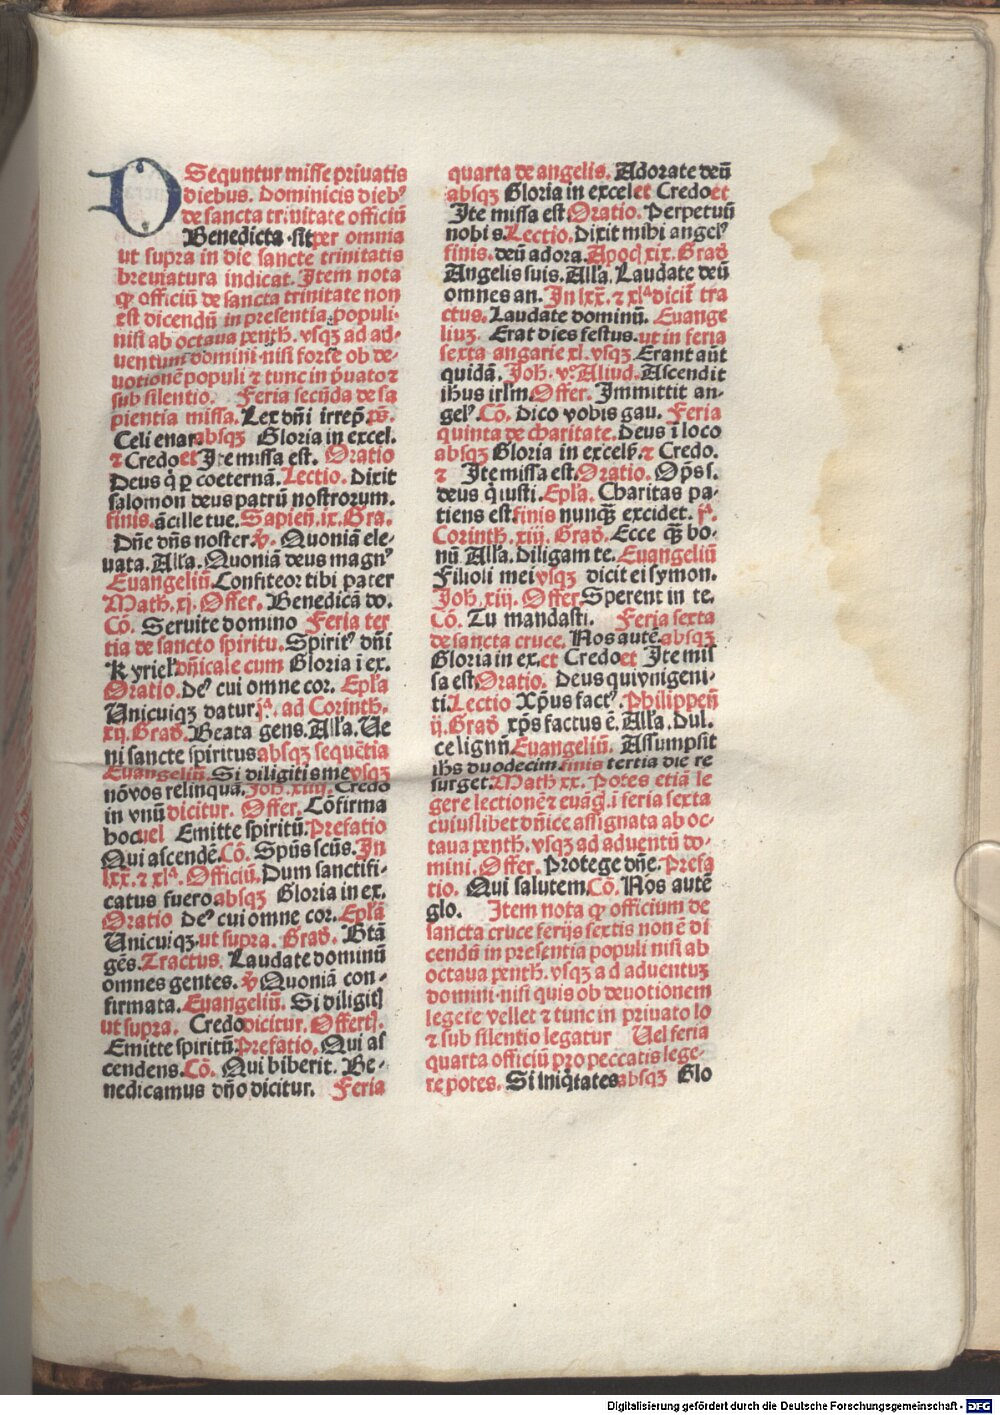 Sequuntur misse priuatis
diebus. Dominicis dieb⁹
de sancta trinitate officiū
Benedicta sit per omnia
ut supra in die sancte trinitatis
breuiatura indicat. Item nota
ꝙ officiū de sancta trinitate non
est dicendū in presentia populi
nisi ab octaua penth. vsqꝫ ad ad-
uentum domini nisi forte ob de-
uotionē populi ⁊ tunc in p̄uato ⁊
sub silentio. Feria secūda de sa
pientia missa. Lex dn̄i irrep̄. p̄s.
Celi enar. absqꝫ Gloria in excel.
⁊ Credo et Ite missa est. Oratio
Deus q̄ ꝑ coeterna. Lectio. Dixit
salomon deus patrū nostrorum.
finis. ācille tue. Sapien̄. ix. Gra.
Dn̄e dn̄s noster. ꝟ. Quoniā ele-
uata. All'a. Quoniā deus magn⁹
Euangeliū. Confiteor tibi pater
Math. xj. Offer. Benedicā do.
Cō. Seruite domino Feria ter
tia de sancto spiritu. Spirit⁹ dn̄i
Kyriel' dn̄icale cum Gloria ī ex.
Oratio. De⁹ cui omne cor. Ep̄la
Unicuiqꝫ datur. jᵃ. ad Corinth.
xij. Grad. Beata gens. All'a. Ue
ni sancte spiritus absqꝫ sequētia
Euangeliū. Si diligitis me vsqꝫ
nō vos relinquā. Joh. xiiij. Credo
in vnū dicitur. Offer. Cōfirma
hoc uel Emitte spiritū. Prefatio
Qui ascendē. Cō. Sp̄us scūs. In
lxx. ⁊ xlᵃ. Officiū. Dum sanctifi-
catus fuero absqꝫ Gloria in ex.
Oratio De⁹ cui omne cor. Ep̄la
Unicuiqꝫ. ut supra. Grad. Btā
gēs. Tractus. Laudate dominū
omnes gentes. ꝟ Quoniā con-
firmata. Euangeliū. Si diligit⁹
ut supra. Credo dicitur. Offert⁹.
Emitte spiritū. Prefatio. Qui as
cendens. Cō. Qui biberit. Be-
nedicamus dn̄o dicitur. Feria
quarta de angelis. Adorate deū
absqꝫ Gloria in excel et Credo et
Ite missa est Oratio. Perpetuū
nobis. Lectio. Dixit mihi angel⁹
finis. deū adora. Apoc⁹ xix. Grad
Angelis suis. All'a. Laudate deū
omnes an. In lxx. ⁊ xlᵃ dicit tra
ctus. Laudate dominū. Euange
liuꝫ. Erat dies festus. ut in feria
sexta angarie xl. vsqꝫ. Erant aūt
quidā. Joh. v.° Aliud. Ascendit
ihus irlm. Offer. Immittit an-
gel⁹. Cō. Dico vobis gau. Feria
quinta de charitate. Deus ī loco
absqꝫ Gloria in excels. ⁊ Credo.
⁊ Ite missa est. Oratio. Op̄s s.
deus q̄ iusti. Ep̄la. Charitas pa-
tiens est finis nunqꝫ excidet. jᵃ.
Corinth. xiij. Grad. Ecce qꝫ bo-
nū All'a. Diligam te. Euangeliū
Filioli mei vsqꝫ dicit ei symon.
Joh. xiij. Offer. Sperent in te.
Cō. Tu mandasti. Feria sexta
de sancta cruce. Nos autē. absqꝫ
Gloria in ex. et Credo et Ite mis
sa est Oratio. Deus qui vnigeni-
ti. Lectio Xp̄us fact⁹. Philippen̄
ij. Grad xp̄s factus ē. All'a. Dul.
ce lignū. Euangeliū. Assumpsit
ihs duodecim. finis tertia die re
surget. Math xx. Potes etiā le
gere lectionē ⁊ euāg. ī feria sexta
cuiuslibet dn̄ice assignata ab oc-
taua penth. vsqꝫ ad aduentū do-
mini. Offer. Protege dn̄e. Prefa
tio. Qui salutem. Cō. Nos autē
glo. Item nota ꝙ officium de
sancta cruce ferijs sextis non ē di
cendū in presentia populi nisi ab
octaua penth. vsqꝫ ad aduentuꝫ
domini nisi quis ob deuotionem
legere vellet ⁊ tunc in priuato lo
⁊ sub silentio legatur Uel feria
quarta officiū pro peccatis lege-
re potes. Si iniq̄tates absqꝫ Glo
Digitalisierung gefördert durch die Deutsche Forschungsgemeinschaft - DFG